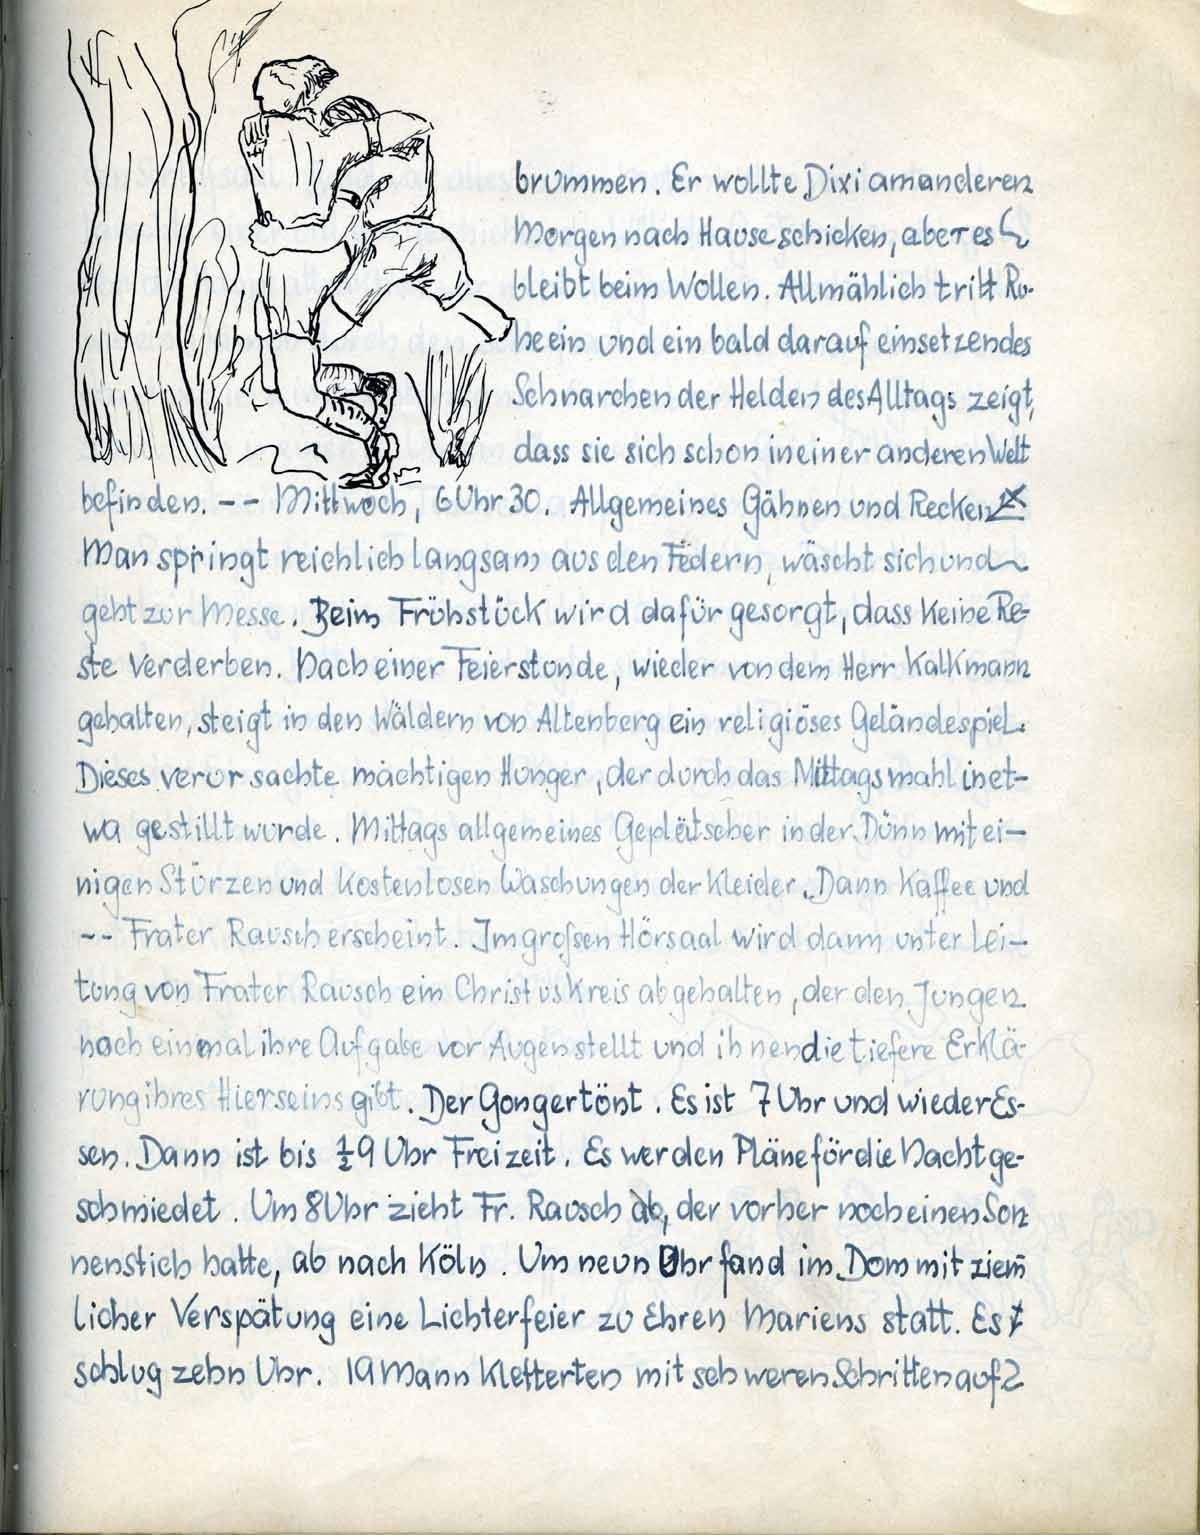 brummen. Er wollte Dixi am anderen
Morgen nach Hause schicken, aber es
bleibt beim Wollen. Allmählich tritt Ru-
he ein und ein bald darauf einsetzendes
Schnarchen der Helden des Alltags zeigt,
dass sie sich schon in einer anderen Welt
befinden. -- Mittwoch, 6 Uhr 30. Allgemeines Gähnen und Recken.
Man springt reichlich langsam aus den Federn, wäscht sich und
geht zur Messe. Beim Frühstück wird dafür gesorgt, dass keine Re-
ste verderben. Nach einer Feierstunde, wieder von dem Herr Kalkmann
gehalten, steigt in den Wäldern von Altenberg ein religiöses Geländespiel.
Dieses verursachte mächtigen Hunger, der durch das Mittagsmahl in et-
wa gestillt wurde. Mittags allgemeines Geplätscher in der Dünn mit ei-
nigen Stürzen und kostenlosen Waschungen der Kleider. Dann Kaffee und
-- Frater Rausch erscheint. Im grossen Hörsaal wird dann unter Lei-
tung von Frater Rausch ein Christuskreis abgehalten, der den Jungen
noch einmal ihre Aufgabe vor Augen stellt und ihnen die tiefere Erklä-
rung ihres Hierseins gibt. Der Gong ertönt. Es ist 7 Uhr und wieder Es-
sen. Dann ist bis ½9 Uhr Freizeit. Es werden Pläne für die Nacht ge-
schmiedet. Um 8 Uhr zieht Fr. Rausch ab, der vorher noch einen Son
nenstich hatte, ab nach Köln. Um neun Uhr fand im Dom mit ziem
licher Verspätung eine Lichterfeier zu Ehren Mariens statt. Es
schlug zehn Uhr. 19 Mann kletterten mit schweren Schritten auf